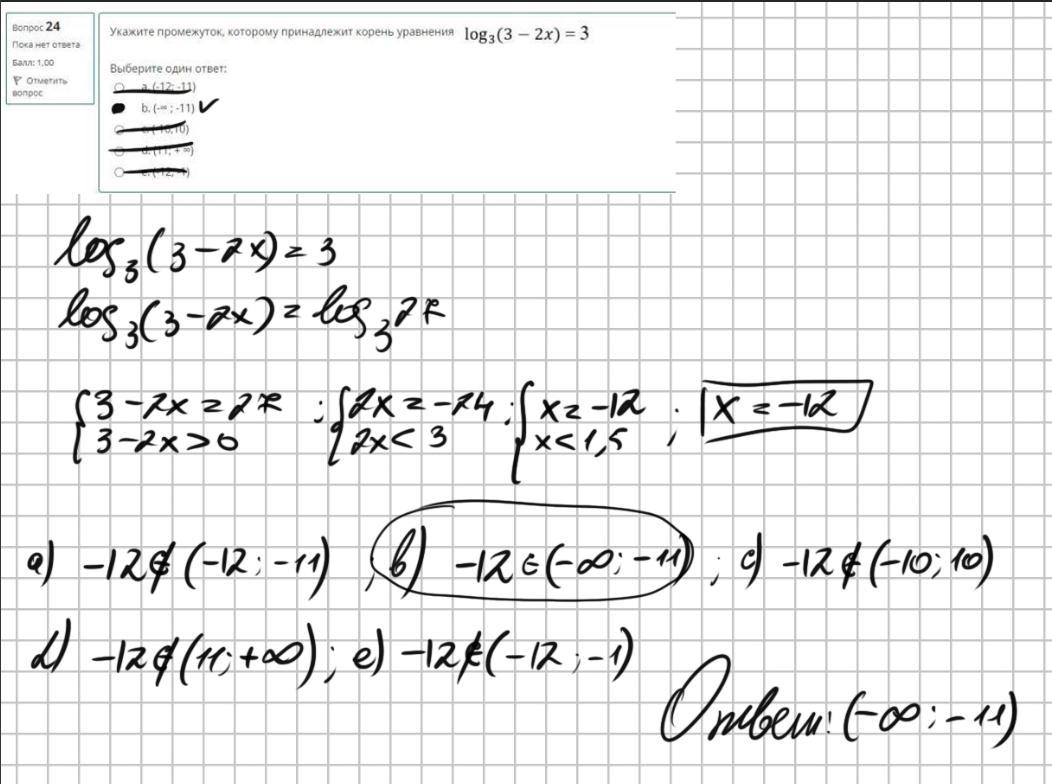 Вопрос 24
Пока нет ответа
Балл: 1,00
Отметить вопрос
Укажите промежуток, которому принадлежит корень уравнения log₃(3 − 2x) = 3
Выберите один ответ:
a. (-12; -11)
b. (-∞ ; -11) ✓
c. (-10;10)
d. (11; + ∞)
e. (-12; -1)
log₃(3-2x) = 3
log₃(3-2x) = log₃27
{3-2x = 27 ; {2x = -24 ; {x = -12 ; x = -12
{3-2x > 0 {2x < 3 {x < 1,5
a) -12∉(-12; -11) ; b) -12∈(-∞; -11) ; c) -12∉(-10; 10)
d) -12∉(11; +∞) ; e) -12∉(-12; -1)
Ответ: (-∞; -11)